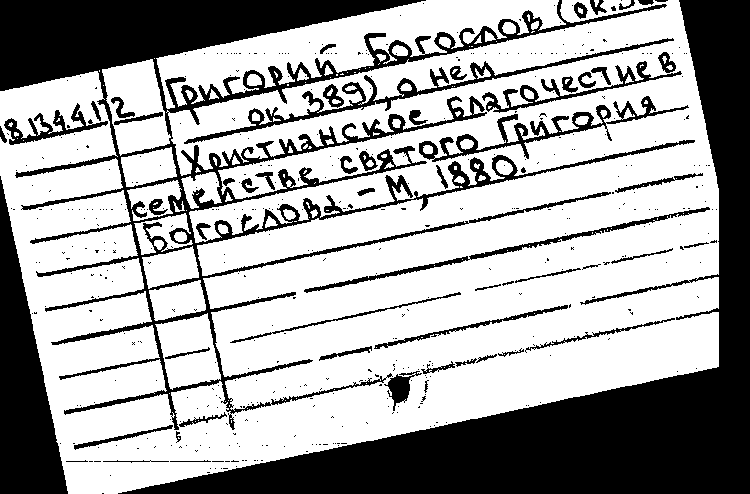 Григорий Богослов (ок.
18.134.4.172
ок. 389), о нем
Христианское благочестие в
семействе святого Григория
Богослова. – М., 1880.